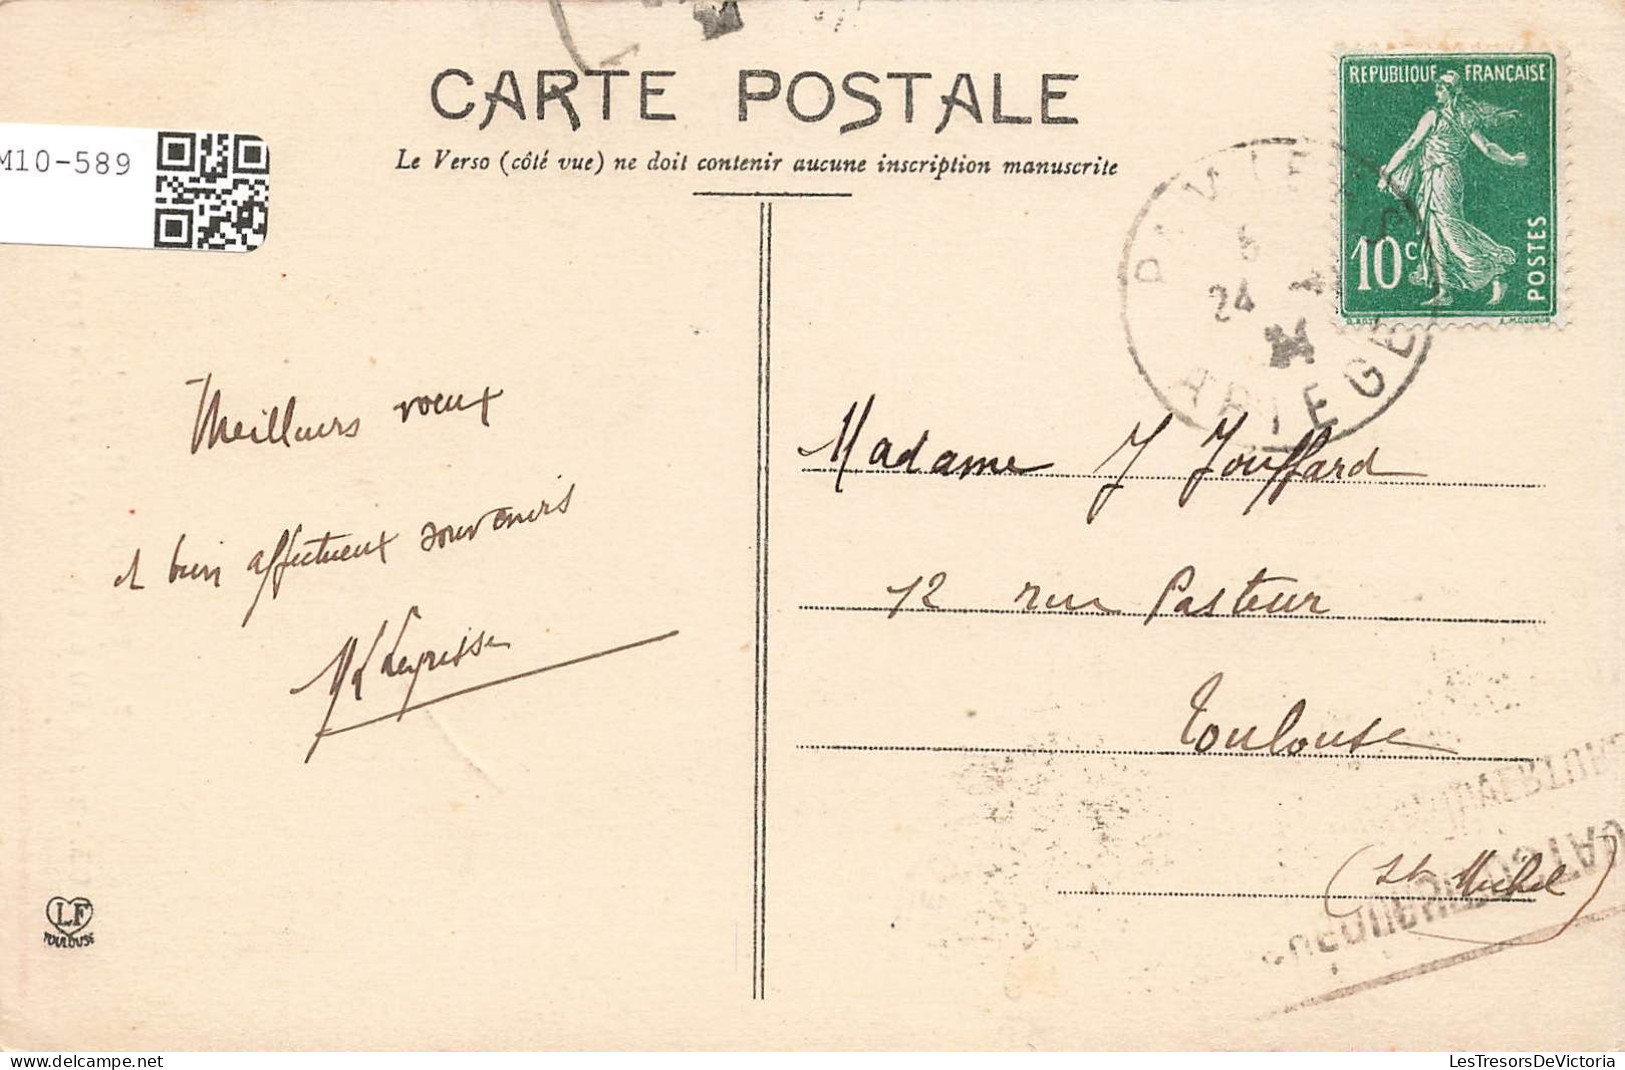 CARTE POSTALE
Le Verso (côté vue) ne doit contenir aucune inscription manuscrite
M10-589
REPUBLIQUE FRANÇAISE
10c
POSTES
24
ARIEGE
Meilleurs vœux
et bien affectueux souvenirs
Madame J Jouffard
12 rue Pasteur
Toulouse
(St Michel)
LF
TOULOUSE
LesTresorsDeVictoria